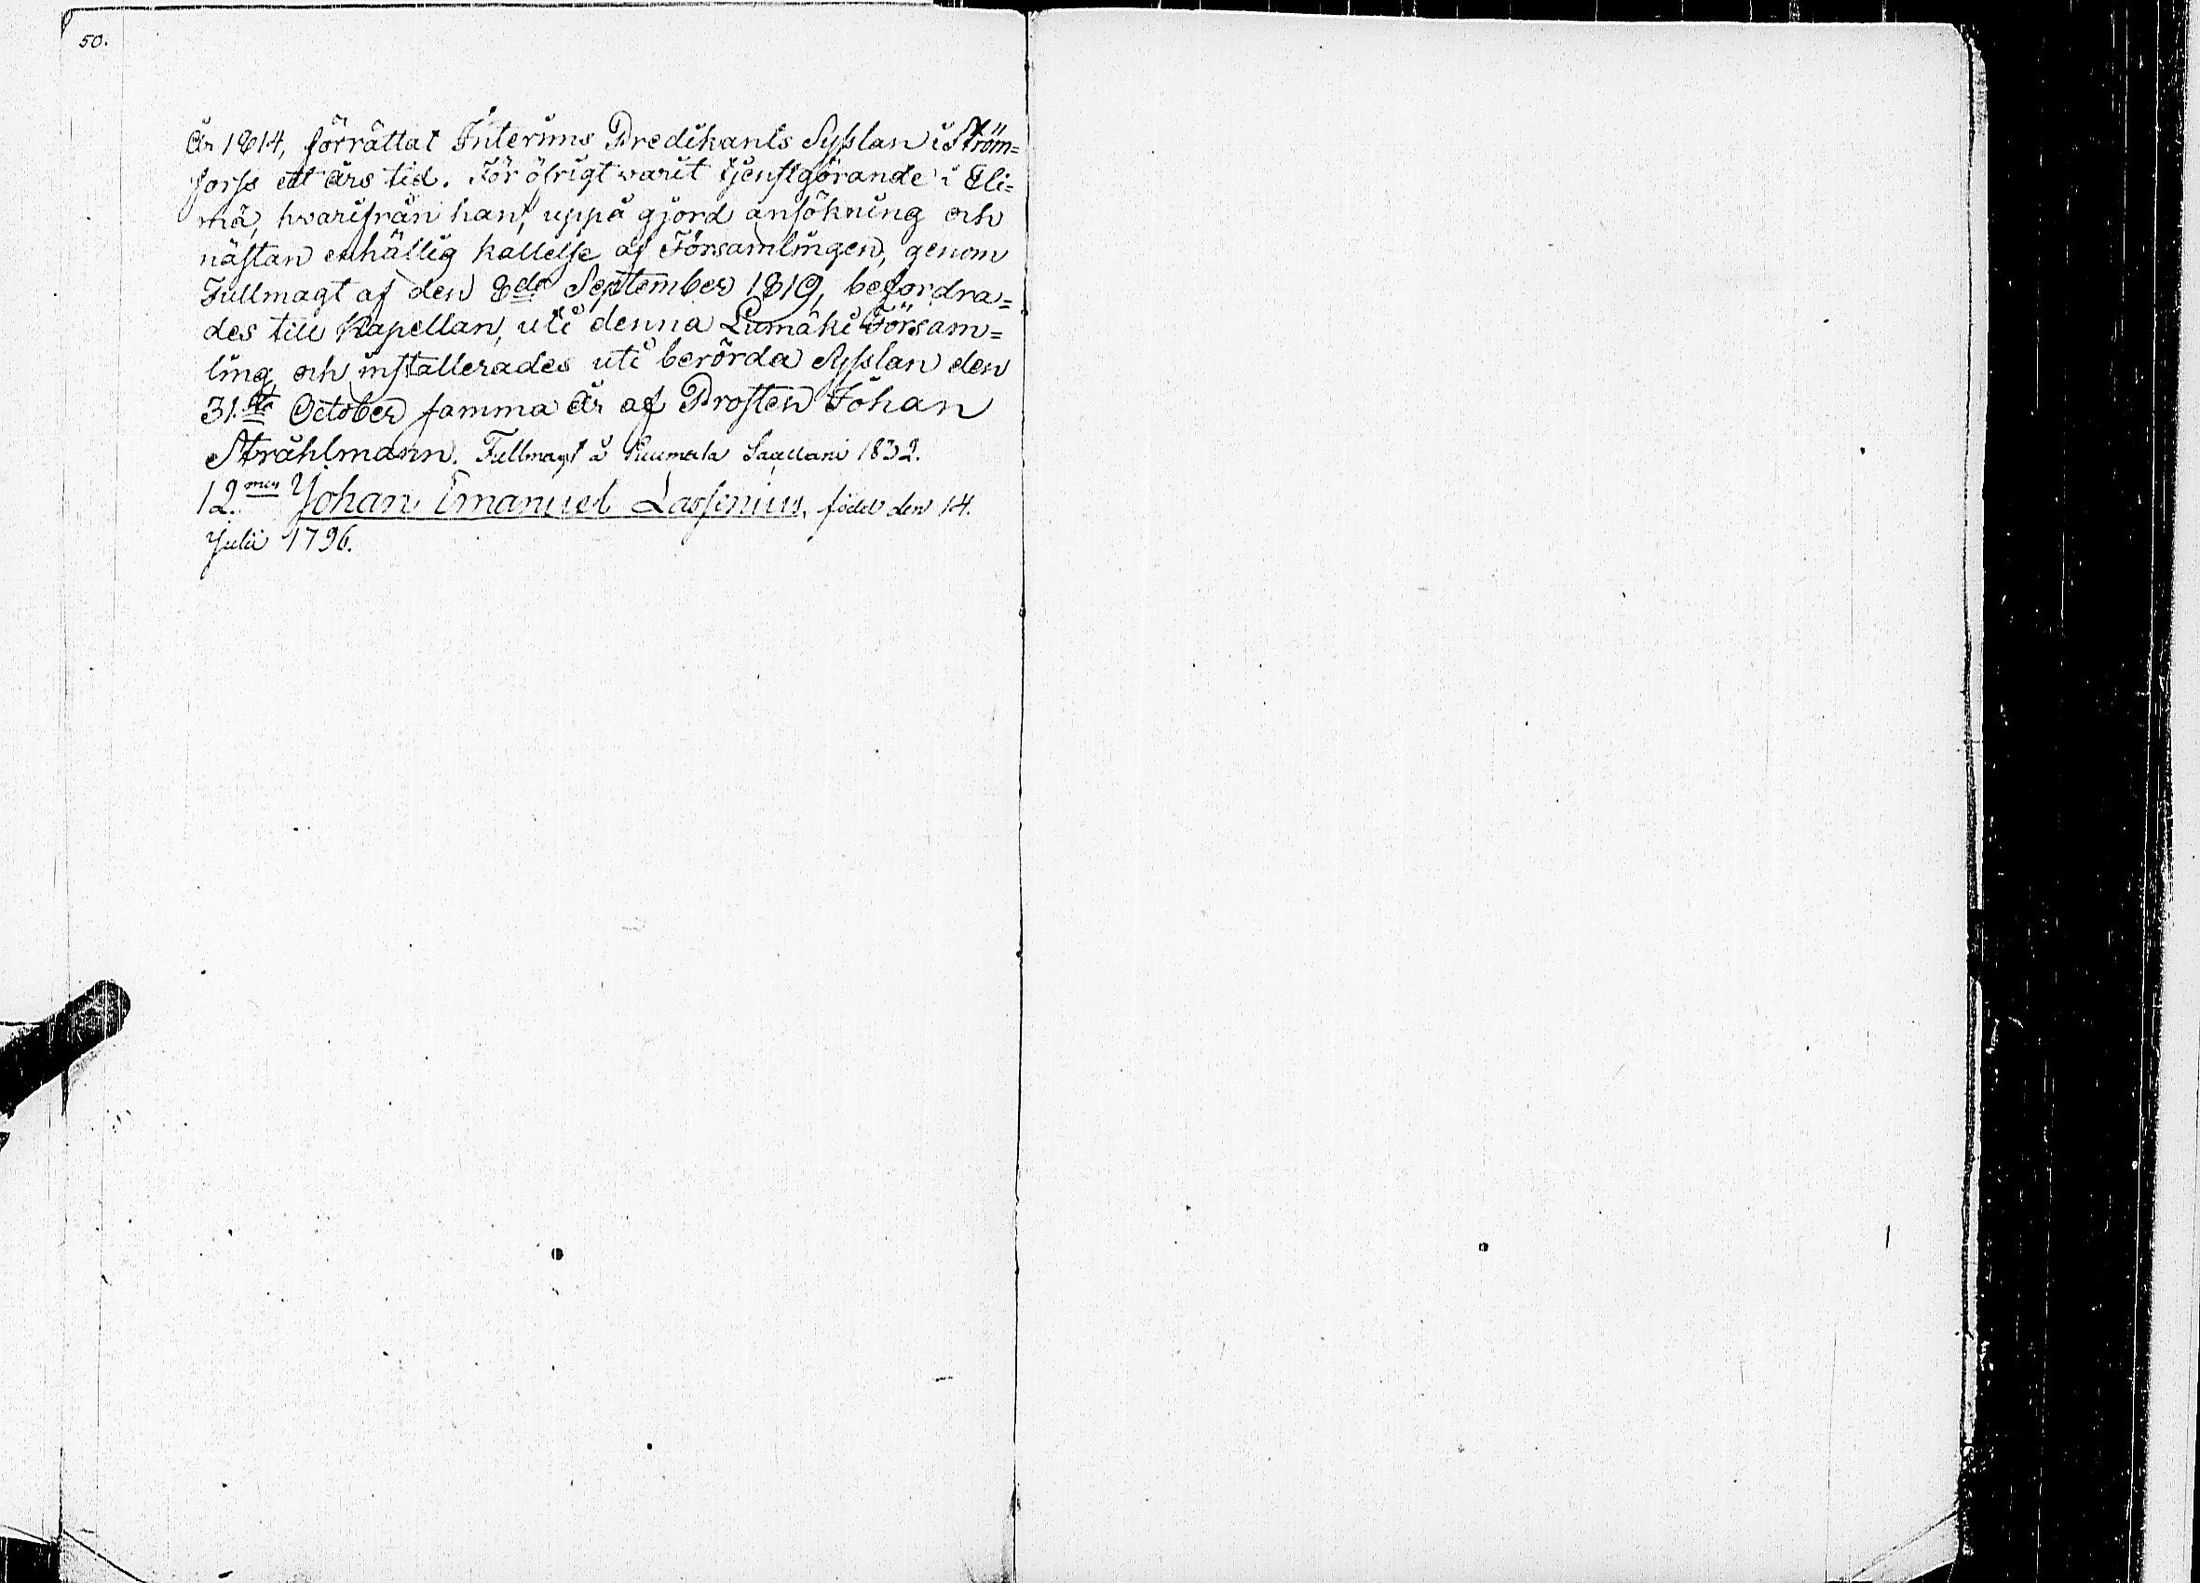 50.
År 1814, förrättat Interims Predikants Sysslan i Ström=
forss ett års tid. För öfrigt varit tjenstgörande i Eli=
mä, hvarifrån han, uppå gjord ansökning och
nästan enhällig kallelse af Församlingen, genom
Fullmagt af den 8de September 1819, befordra=
des till Kapellan, uti denna Lumäki Försam=
ling, och installerades uti berörda Sysslan den
31.ste October samma år af Prosten Johan
Stråhlmann. Fullmagt å Suumala 1832.
12.men Johan Emanuel Lassenius, född den 14.
Julii 1796.